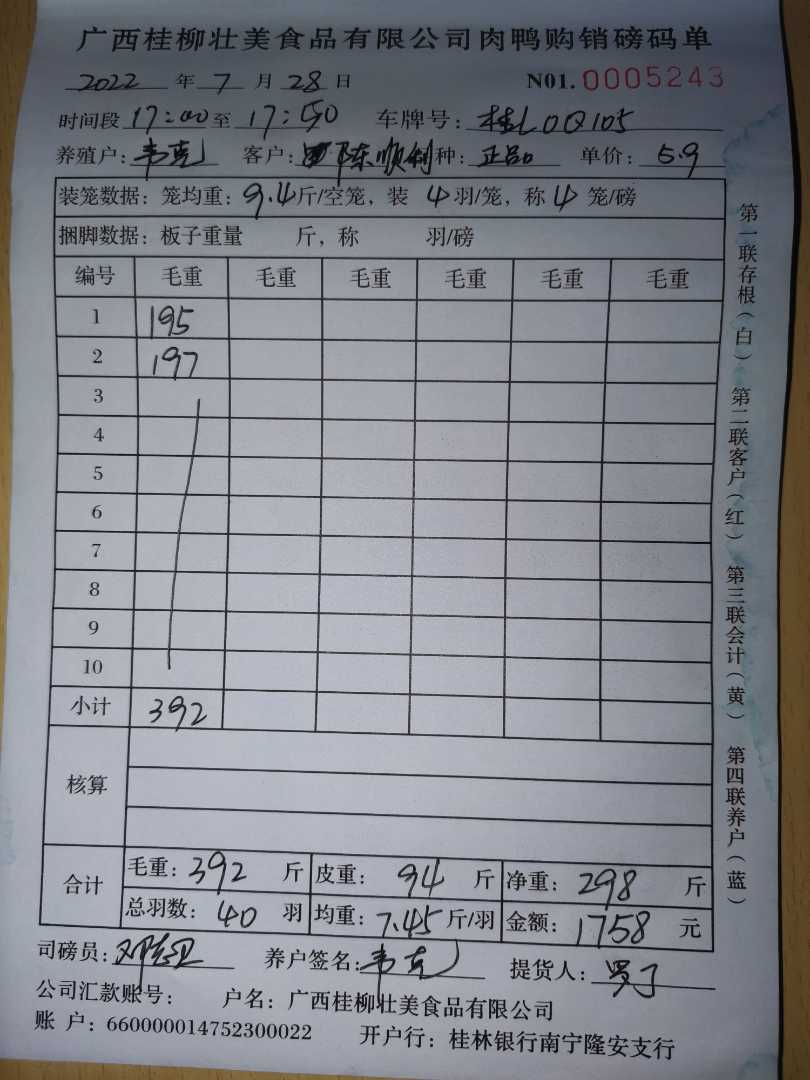 广西桂柳壮美食品有限公司肉鸭购销磅码单
2022 年 7 月 28 日 N01. 0005243
时间段 17:00 至 17:50 车牌号: 桂L0Q105
养殖户: 韦克 客户: 陈顺利 种: 正品 单价: 5.9
装笼数据: 笼均重: 9.4 斤/空笼, 装 4 羽/笼, 称 4 笼/磅
捆脚数据: 板子重量 斤, 称 羽/磅
编号 毛重 毛重 毛重 毛重 毛重 毛重
1 195
2 197
3
4
5
6
7
8
9
10
小计 392
核算
合计 毛重: 392 斤 皮重: 94 斤 净重: 298 斤
总羽数: 40 羽 均重: 7.45 斤/羽 金额: 1758 元
司磅员: 养户签名: 韦克 提货人:
公司汇款账号: 户名: 广西桂柳壮美食品有限公司
账 户: 660000014752300022 开户行: 桂林银行南宁隆安支行
第一联存根(白) 第二联客户(红) 第三联会计(黄) 第四联养户(蓝)